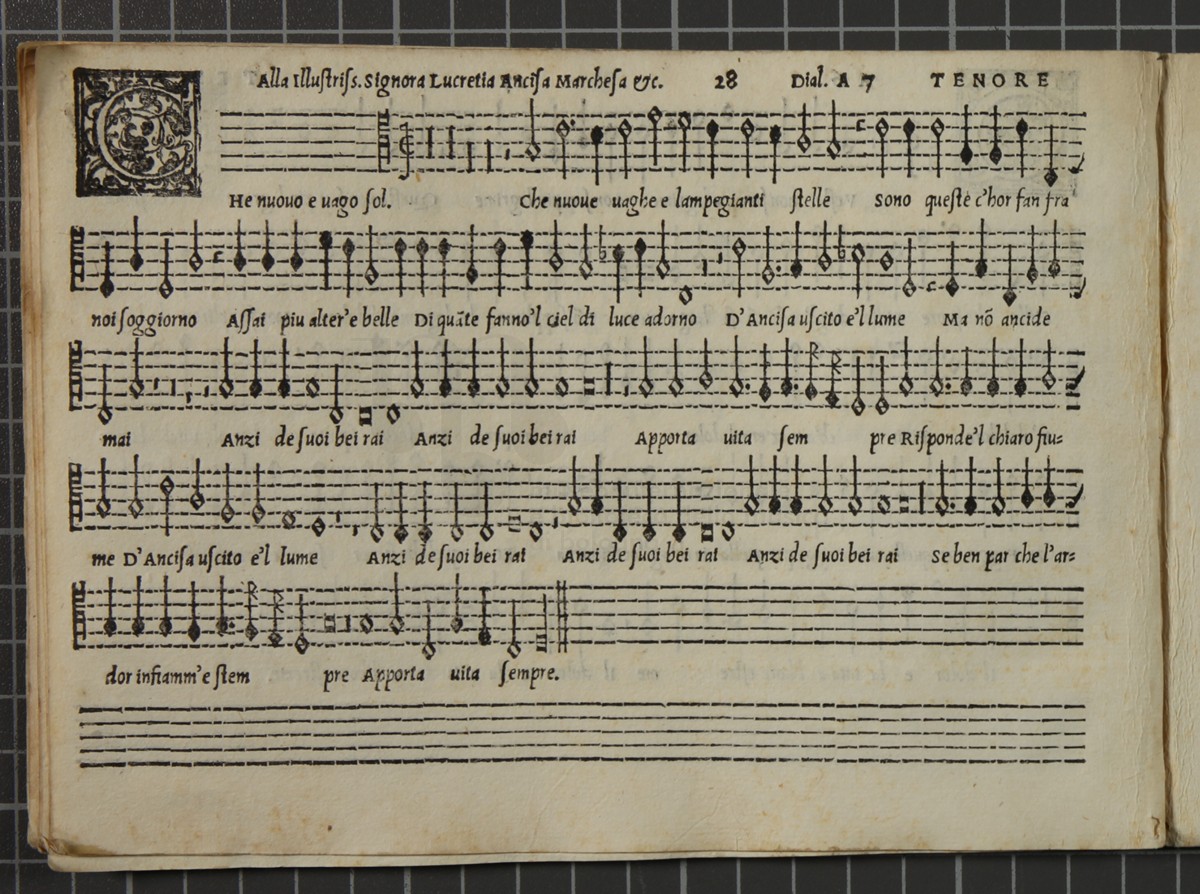 Alla Illustriss. Signora Lucretia Ancisa Marchesa &c. 28 Dial. A 7 TENORE
CHe nuovo e uago sol. Che nuoue uaghe e lampegianti stelle sono queste c'hor fan fra
noi soggiorno Assai piu alter'e belle Di quãte fanno'l ciel di luce adorno D'Ancisa uscito e'l lume Ma nõ ancide
mai Anzi de suoi bei rai Anzi de suoi bei rai Apporta uita sem pre Risponde'l chiaro fiu=
me D'Ancisa uscito e'l lume Anzi de suoi bei rai Anzi de suoi bei rai Anzi de suoi bei rai Se ben par che l'ar=
dor infiamm'e stem pre Apporta uita sempre.